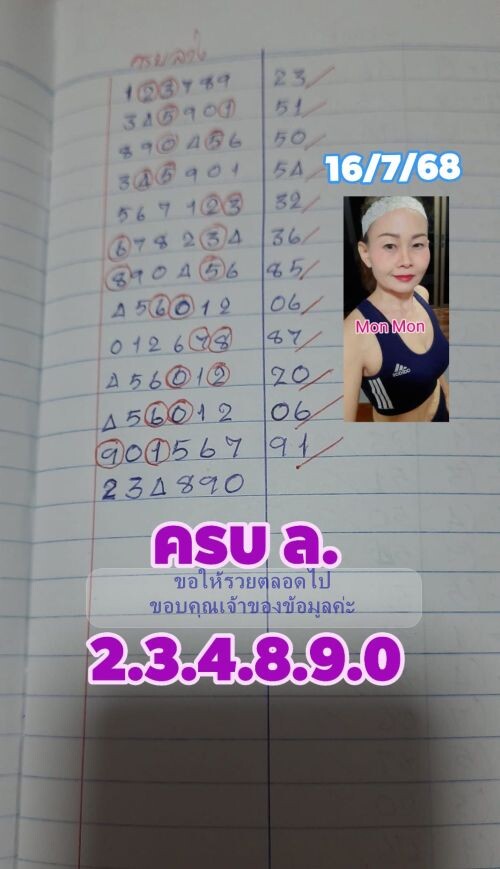 ครบล่าง
123789 23
345901 51
890456 50
345901 54
16/7/68
567123 32
678234 36
890456 85
456012 06
Mon Mon
012678 87
adidas
456012 20
456012 06
901567 91
234890
ครบ ล.
ขอให้รวยตลอดไป
ขอบคุณเจ้าของข้อมูลค่ะ
2.3.4.8.9.0